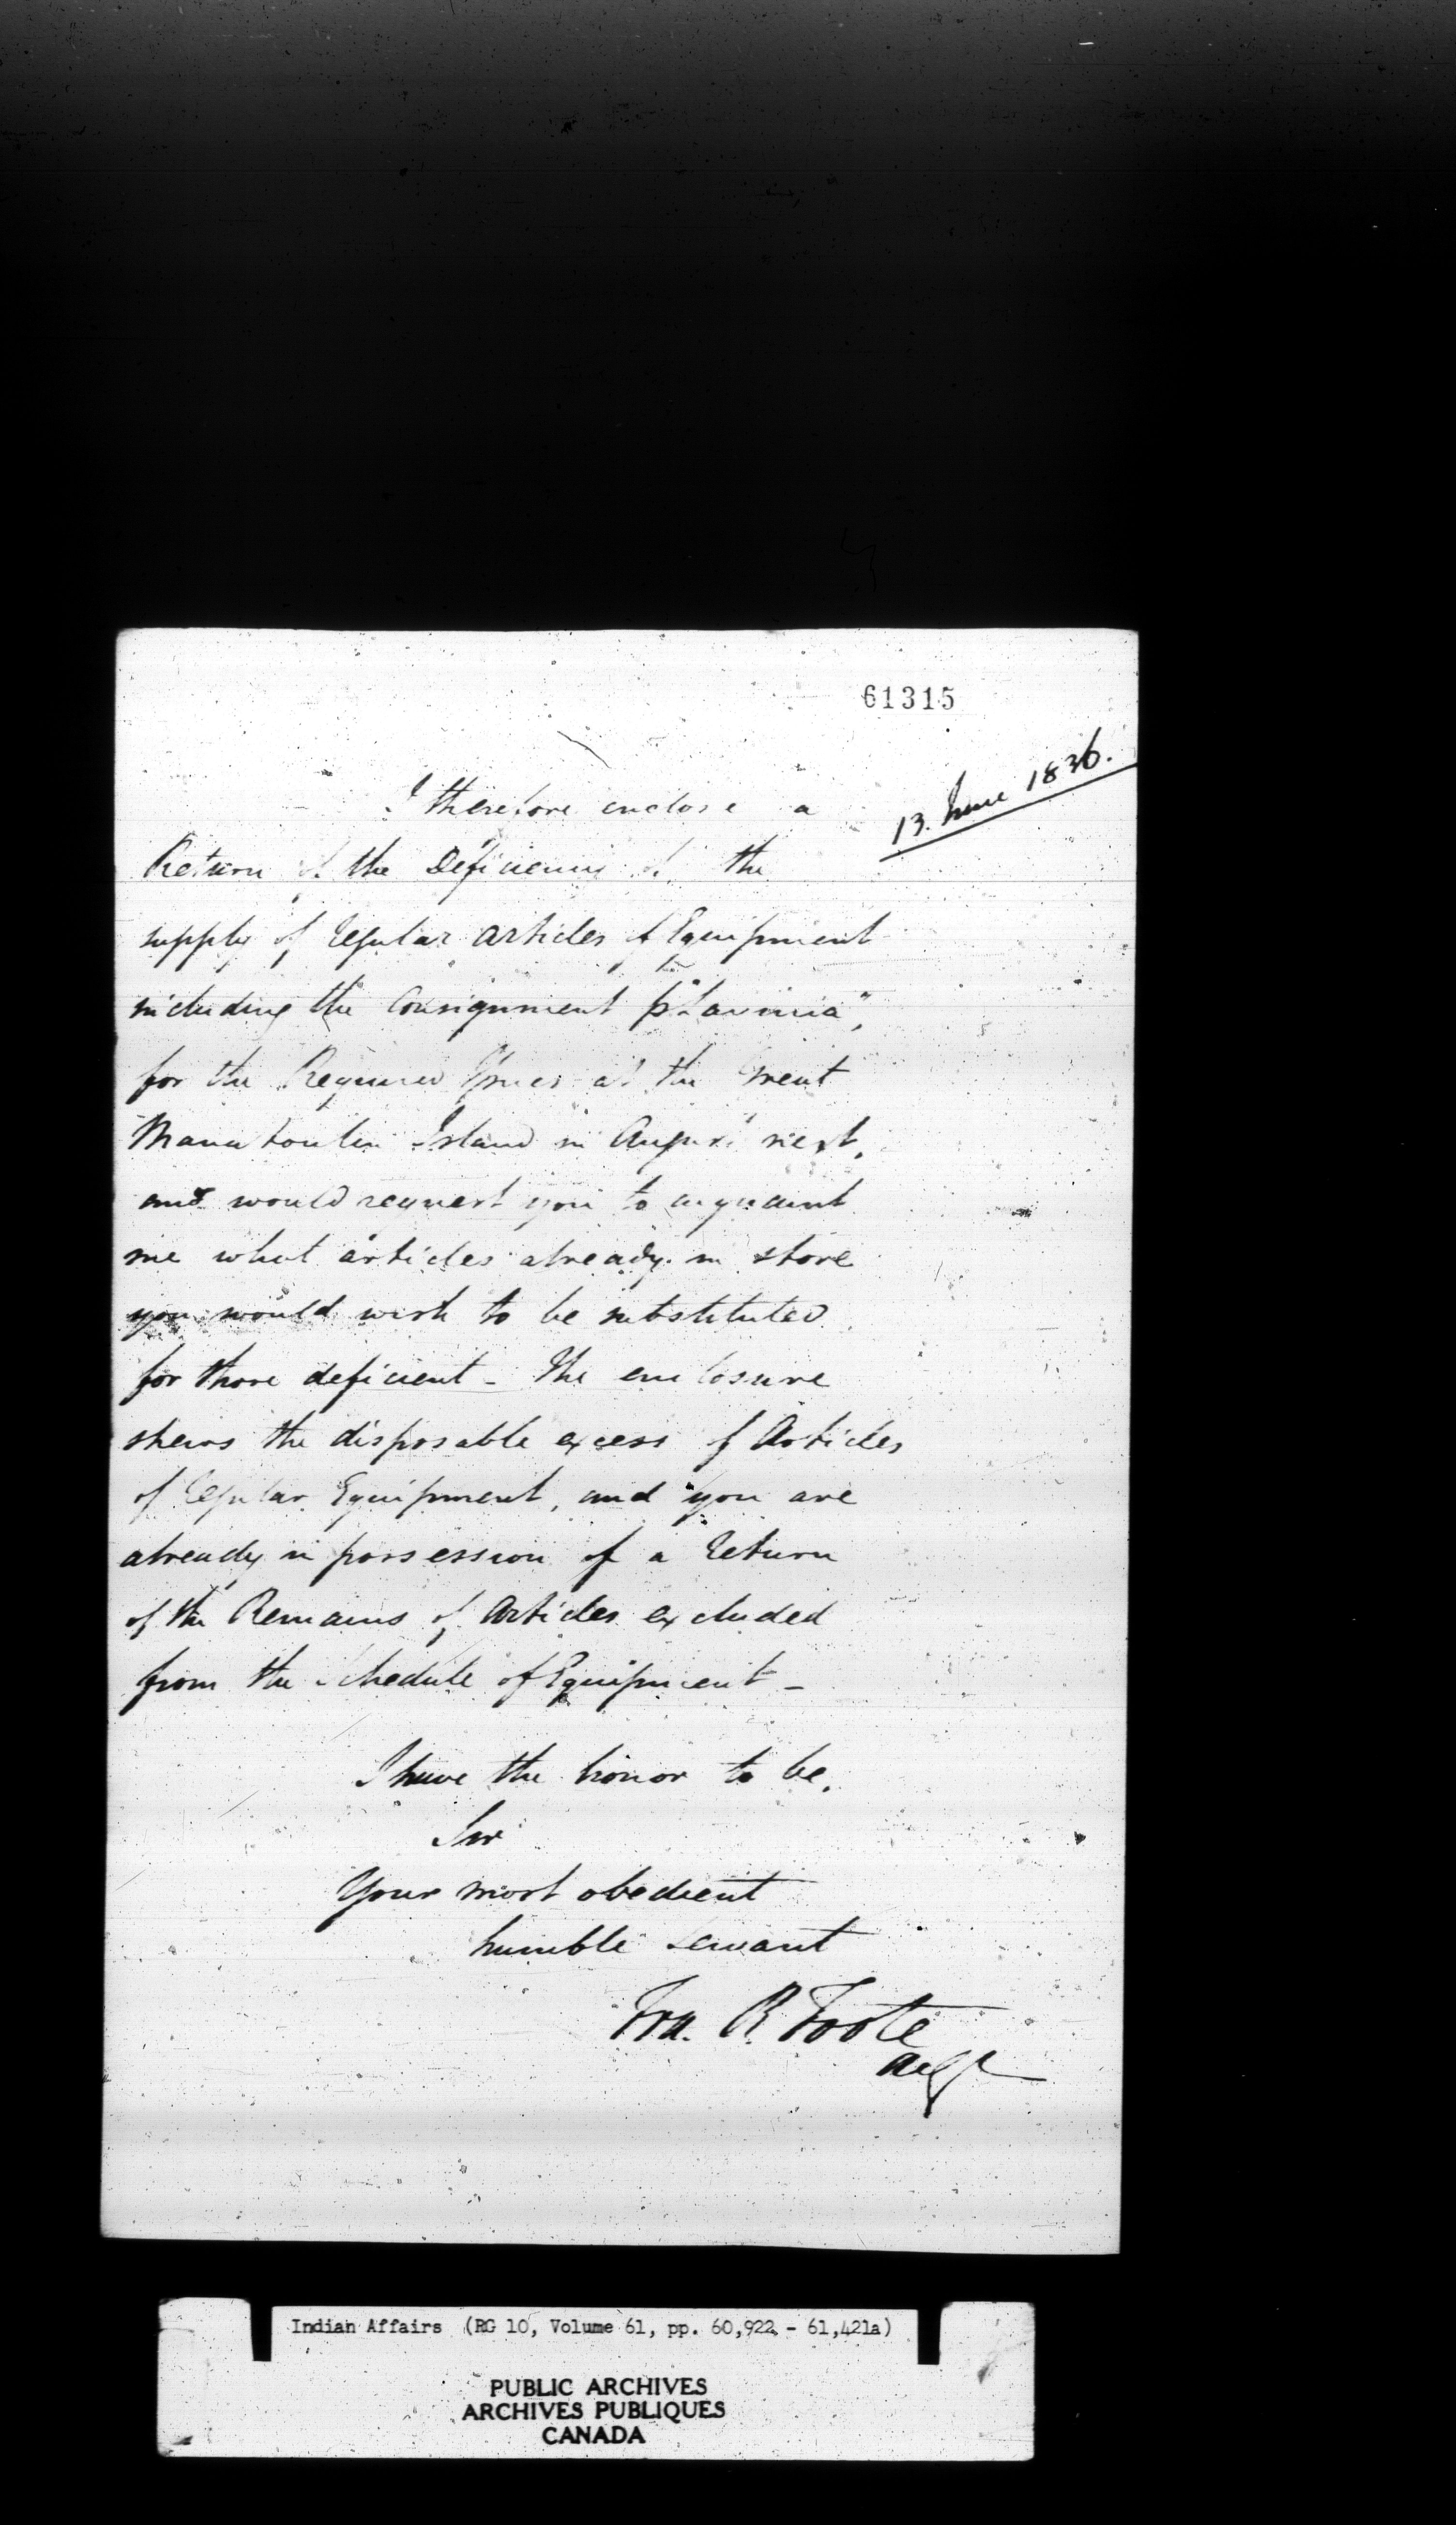 61315
13. June 1836.
I therefore enclose a
Return of the Deficiencies of the
supply of regular articles of Equipment
including the Consignment pr "Lavinia",
for the Required Issues at the Great
Manatoulin Island in August next,
and would request you to acquaint
me what articles already in store
you would wish to be substituted
for those deficient - The enclosure
shews the disposable excess of Articles
of regular Equipment, and you are
already in possession of a Return
of the Remains of Articles excluded
from the Schedule of Equipment -
I have the honor to be,
Sir
Your most obedient
humble Servant
Fra. R Foote
Indian Affairs (RG 10, Volume 61, pp. 60,922 - 61,421a)
PUBLIC ARCHIVES
ARCHIVES PUBLIQUES
CANADA